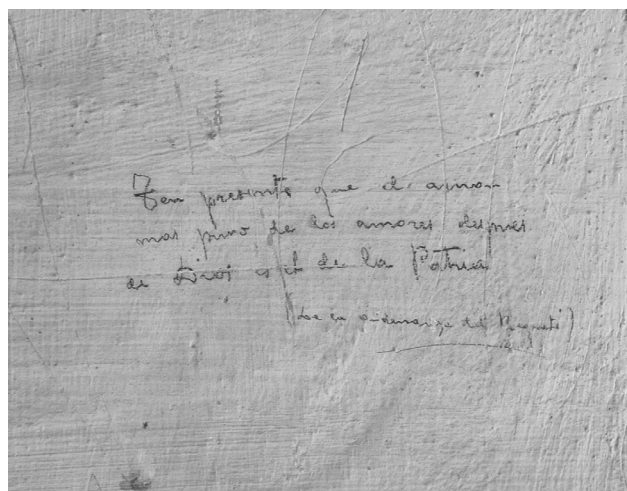 Ten presente que el amor
mas puro de los amores despues
de Dios es el de la Patria
(De la ordenanza del Requeté)